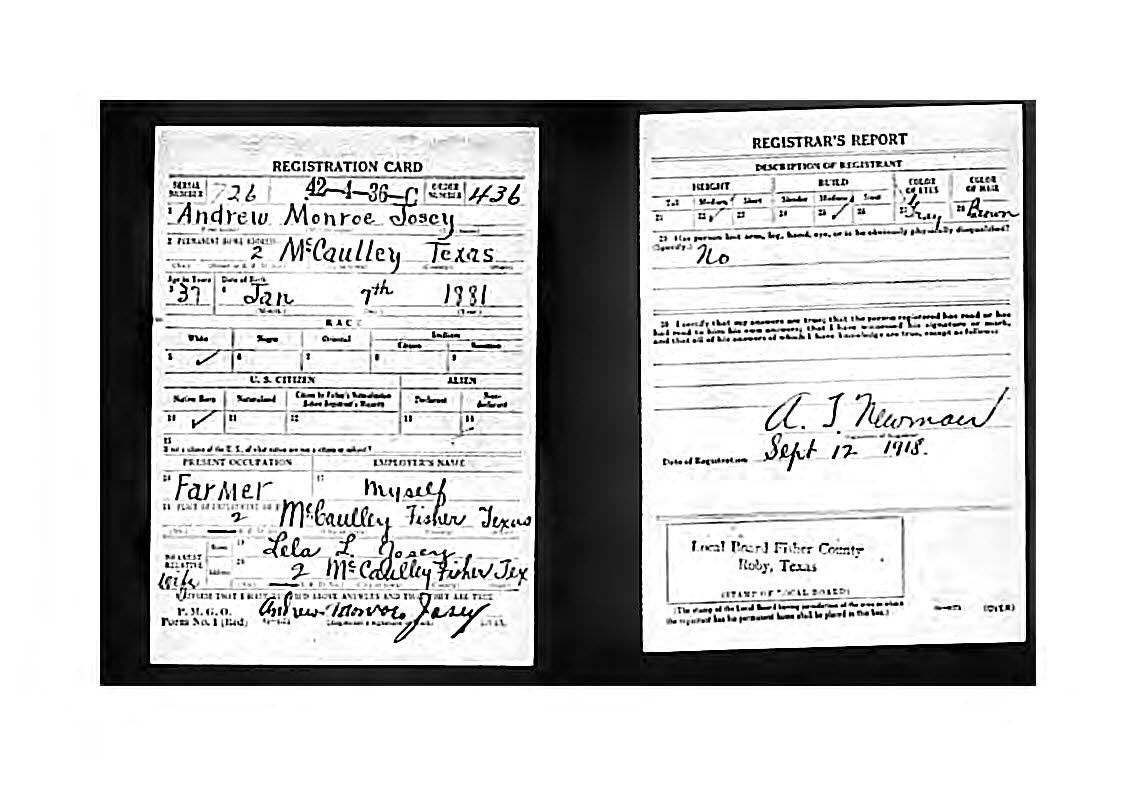 REGISTRATION CARD
SERIAL NUMBER 726 42-4-36-C ORDER NUMBER 436
1 Andrew Monroe Josey
2 PERMANENT HOME ADDRESS
2 McCaulley Texas
Age in Years Date of Birth
3 37 4 Jan 7th 1881
(Month) (Day) (Year)
RACE
White Negro Oriental Indian
Citizen Noncitizen
5 ✓ 6 7 8 9
U. S. CITIZEN ALIEN
Native Born Naturalized Citizen by Father's Naturalization Before Registrant's Majority Declarant Non-declarant
10 ✓ 11 12 13 14
15
If not a citizen of the U. S., of what nation are you a citizen or subject?
PRESENT OCCUPATION EMPLOYER'S NAME
16 Farmer 17 Myself
18 PLACE OF EMPLOYMENT OR
2 McCaulley Fisher Texas
NEAREST RELATIVE Name 19 Lela L. Josey
Wife Address 20 2 McCaulley Fisher Tex
I AFFIRM THAT I HAVE VERIFIED ABOVE ANSWERS AND THAT THEY ARE TRUE
P. M. G. O.
Form No. 1 (Red) Andrew Monroe Josey
(Registrant's signature or mark) (OVER)
REGISTRAR'S REPORT
DESCRIPTION OF REGISTRANT
HEIGHT BUILD COLOR OF EYES COLOR OF HAIR
Tall Medium Short Slender Medium Stout
21 22 ✓ 23 24 25 ✓ 26 27 Gray 28 Brown
29 Has person lost arm, leg, hand, eye, or is he obviously physically disqualified?
(Specify.) No
30 I certify that my answers are true; that the person registered has read or has
had read to him his own answers; that I have witnessed his signature or mark,
and that all of his answers of which I have knowledge are true, except as follows:
A. T. Newman
(Signature of Registrar)
Date of Registration Sept 12 1918.
Local Board Fisher County
Roby, Texas
(STAMP OF LOCAL BOARD)
(The stamp of the Local Board having jurisdiction of the area in which
the registrant has his permanent home shall be placed in this box.)
(OVER)